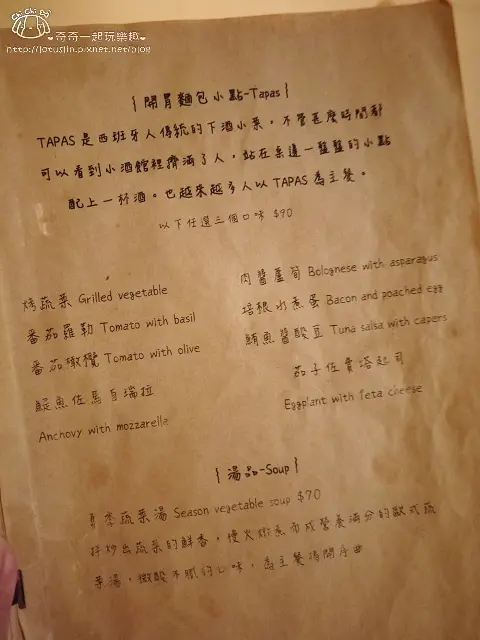 Chi Chi Bei
奇奇一起玩樂趣
http://lotuslin.pixnet.net/blog
{ 開胃麵包小點-Tapas }
TAPAS 是西班牙人傳統的下酒小菜,不管甚麼時間都
可以看到小酒館裡擠滿了人,站在桌邊一盤盤的小點
配上一杯酒。也越來越多人以 TAPAS 為主餐。
以下任選三個口味 $90
烤蔬菜 Grilled vegetable
番茄羅勒 Tomato with basil
番茄橄欖 Tomato with olive
鯷魚佐馬自瑞拉
Anchovy with mozzarella
肉醬蘆筍 Bolognese with asparagus
培根水煮蛋 Bacon and poached egg
鮪魚醬酸豆 Tuna salsa with capers
茄子佐費塔起司
Eggplant with feta cheese
{ 湯品-Soup }
季蔬菜湯 Season vegetable soup $70
拌炒出蔬菜的鮮香,慢火燉煮而成營養滿分的歐式蔬
菜湯,微酸不膩的口味,為主餐揭開序曲